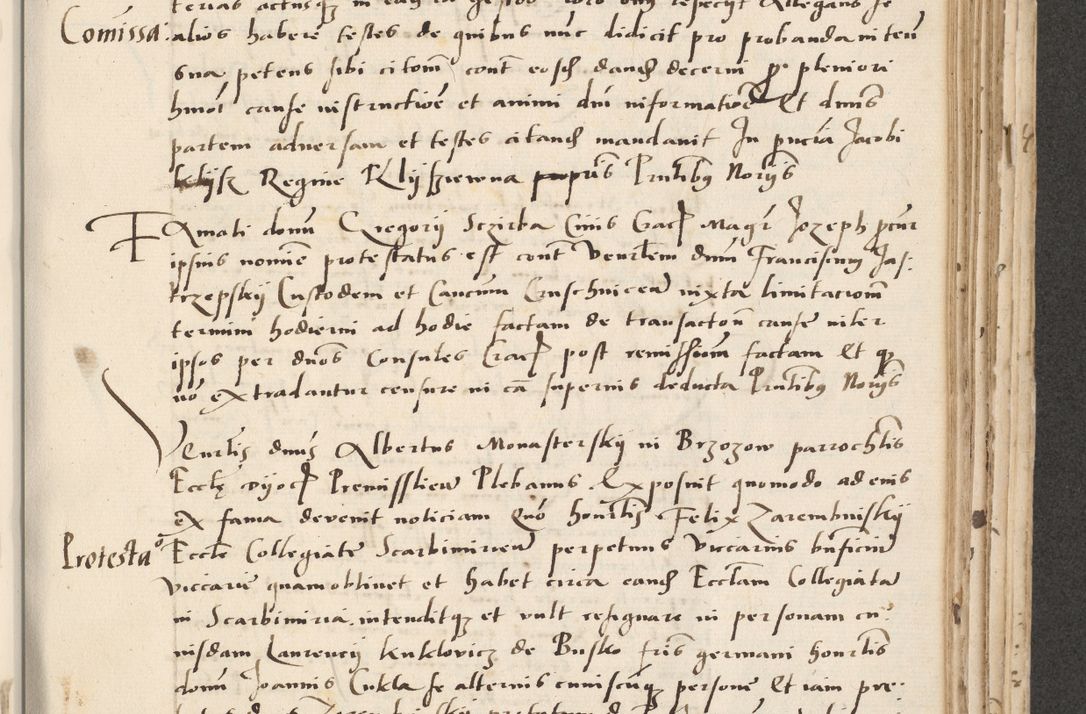 Comissa
alios habere testes de quibus nunc didicit pro probanda intentione
sua petens sibi citationem contra eosdem dandam decerni pro pleniori
huiusmodi cause instructione et animi domini informatione Et dominus
partem adversam et testes citandum mandavit In presencia Jacobi
Regine Klyszewna Presentibus Notariis
Famati domini Gregorii Sczirba Civis Crac Magister Jozeph procurator
ipsius nomine protestatus est contra Venerabilem dominum Franciscum Jas:
trzepskij Custodem et Canonicum Cruschvicensem iuxta limitacionem
termini hodierni ad hodie factam de transactione cause inter
ipsos per dominos Consules Crac post remissionem factam Et quod
non extradantur censure in causa superius deducta Presentibus Notariis
Venerabilis dominus Albertus Monasterskij in Brzozow parrochialis
Ecclesie diocesis Premissliensis Plebanus Exposuit quomodo ad eius
ex fama devenit noticiam Quomodo honorabilis Felix Zarembinskij
Protestatio
Ecclesie Collegiate Scarbimiriensis perpetuus viccarius beneficium
viccarie quam obtinet et habet circa eandem Ecclesiam Collegiatam
in Scarbimiria intenditque et vult resignare in personam cu:
iusdam Laurencij Kuklovicz de Busko fratris germani honorabilis
domini Joannis Cukla se alternis cuiuscunque persone Et iam pre: